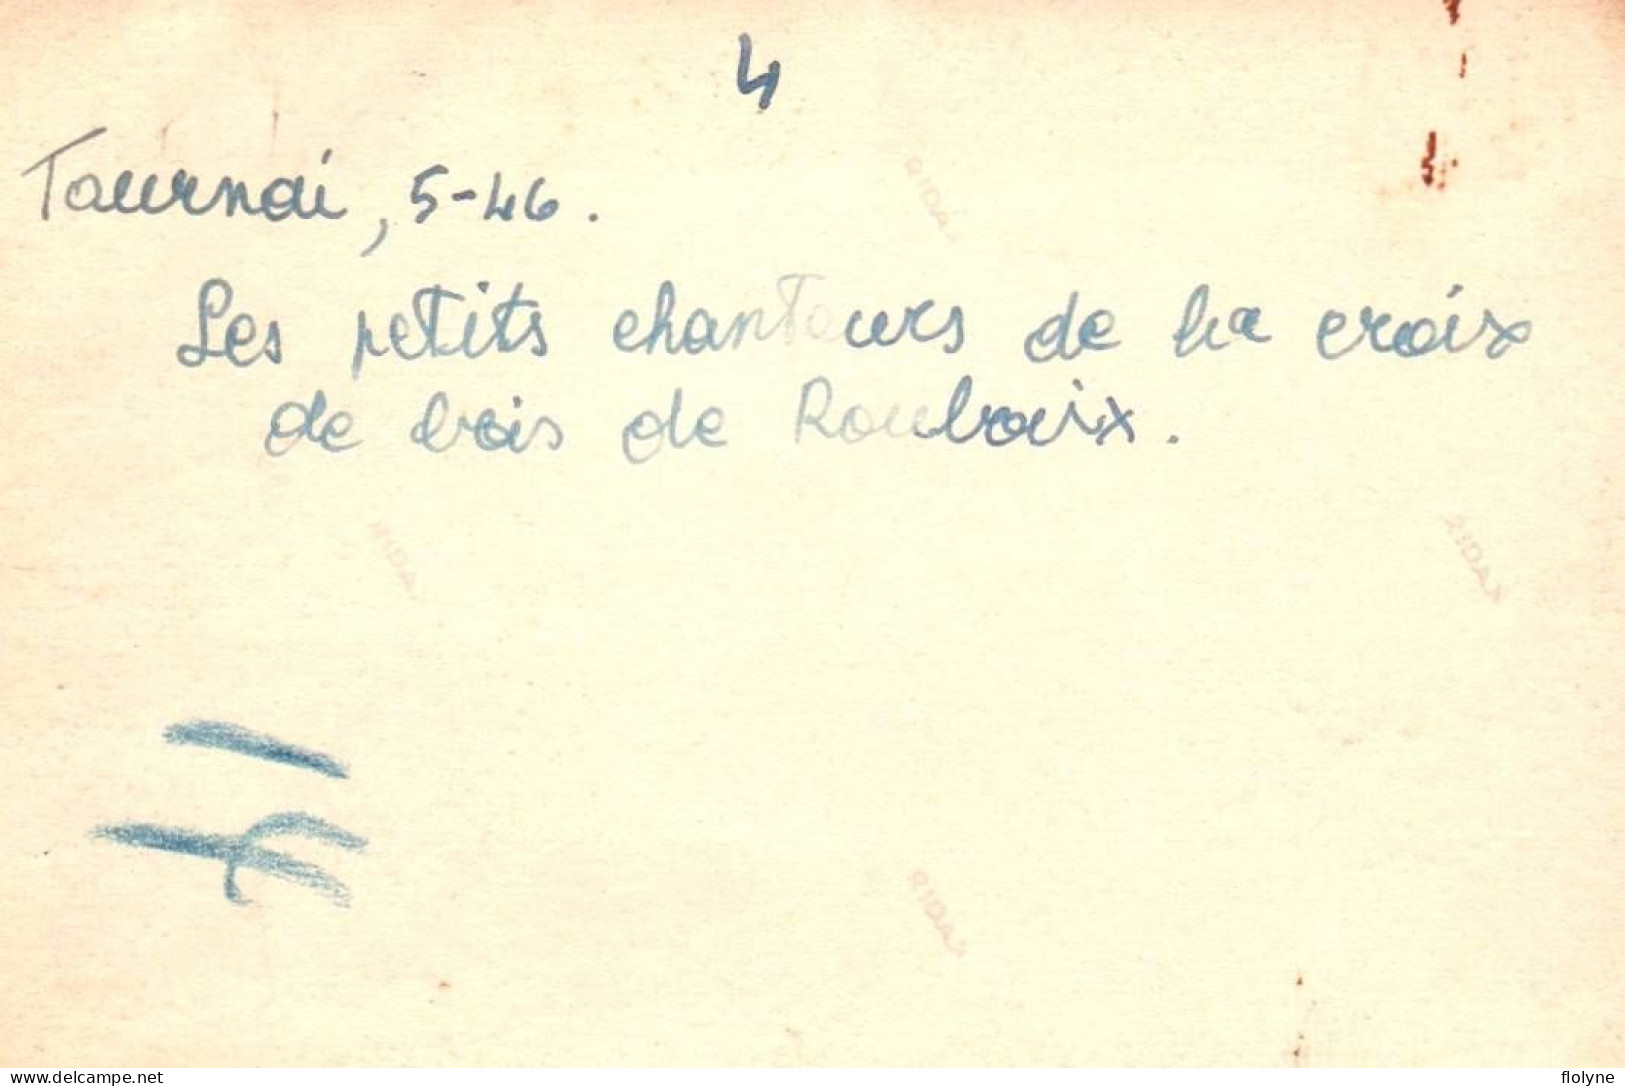 4
Tournai, 5-46.
Les petits chanteurs de la croix
de bois de Roubaix.
RIDAX
RIDAX
RIDAX
RIDAX
delcampe.net
flolyne